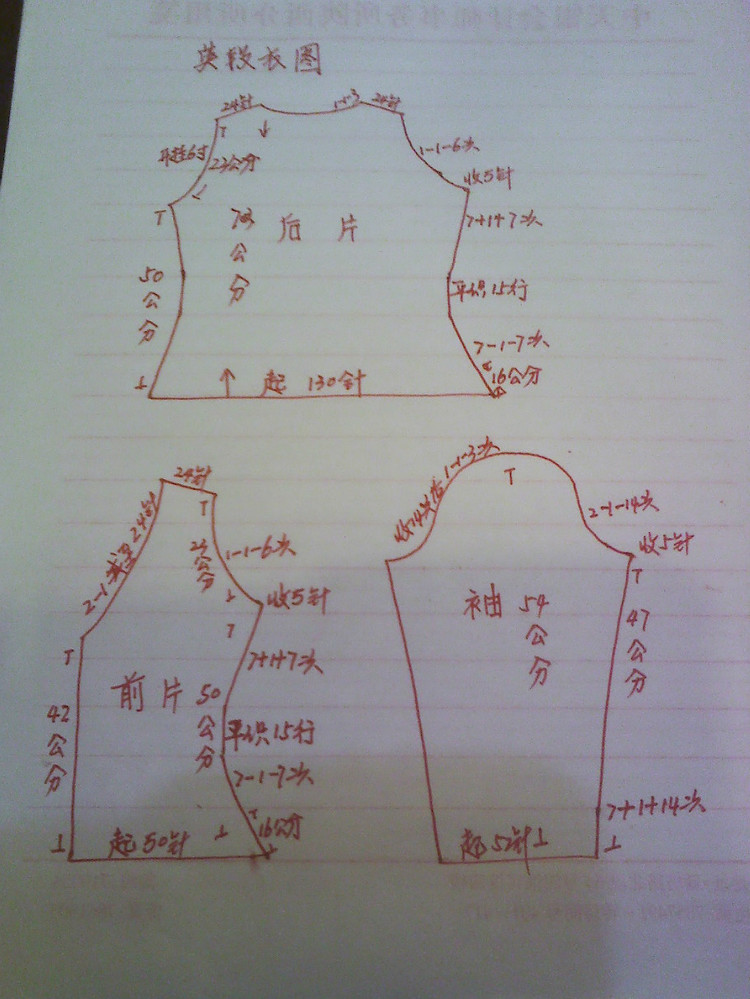 英段衣图
24针
1-1-3
24针
22公分
1-1-6次
收5针
72公分
后片
7+1+7次
50公分
平织15行
7-1-7次
16公分
起130针
24针
2-1减至24针
22公分
1-1-6次
收5针
前片
50公分
7+1+7次
42公分
平织15行
7-1-7次
16公分
起50针
1-1-3次
2-1-14次
收5针
袖54公分
47公分
7+1+14次
起52针